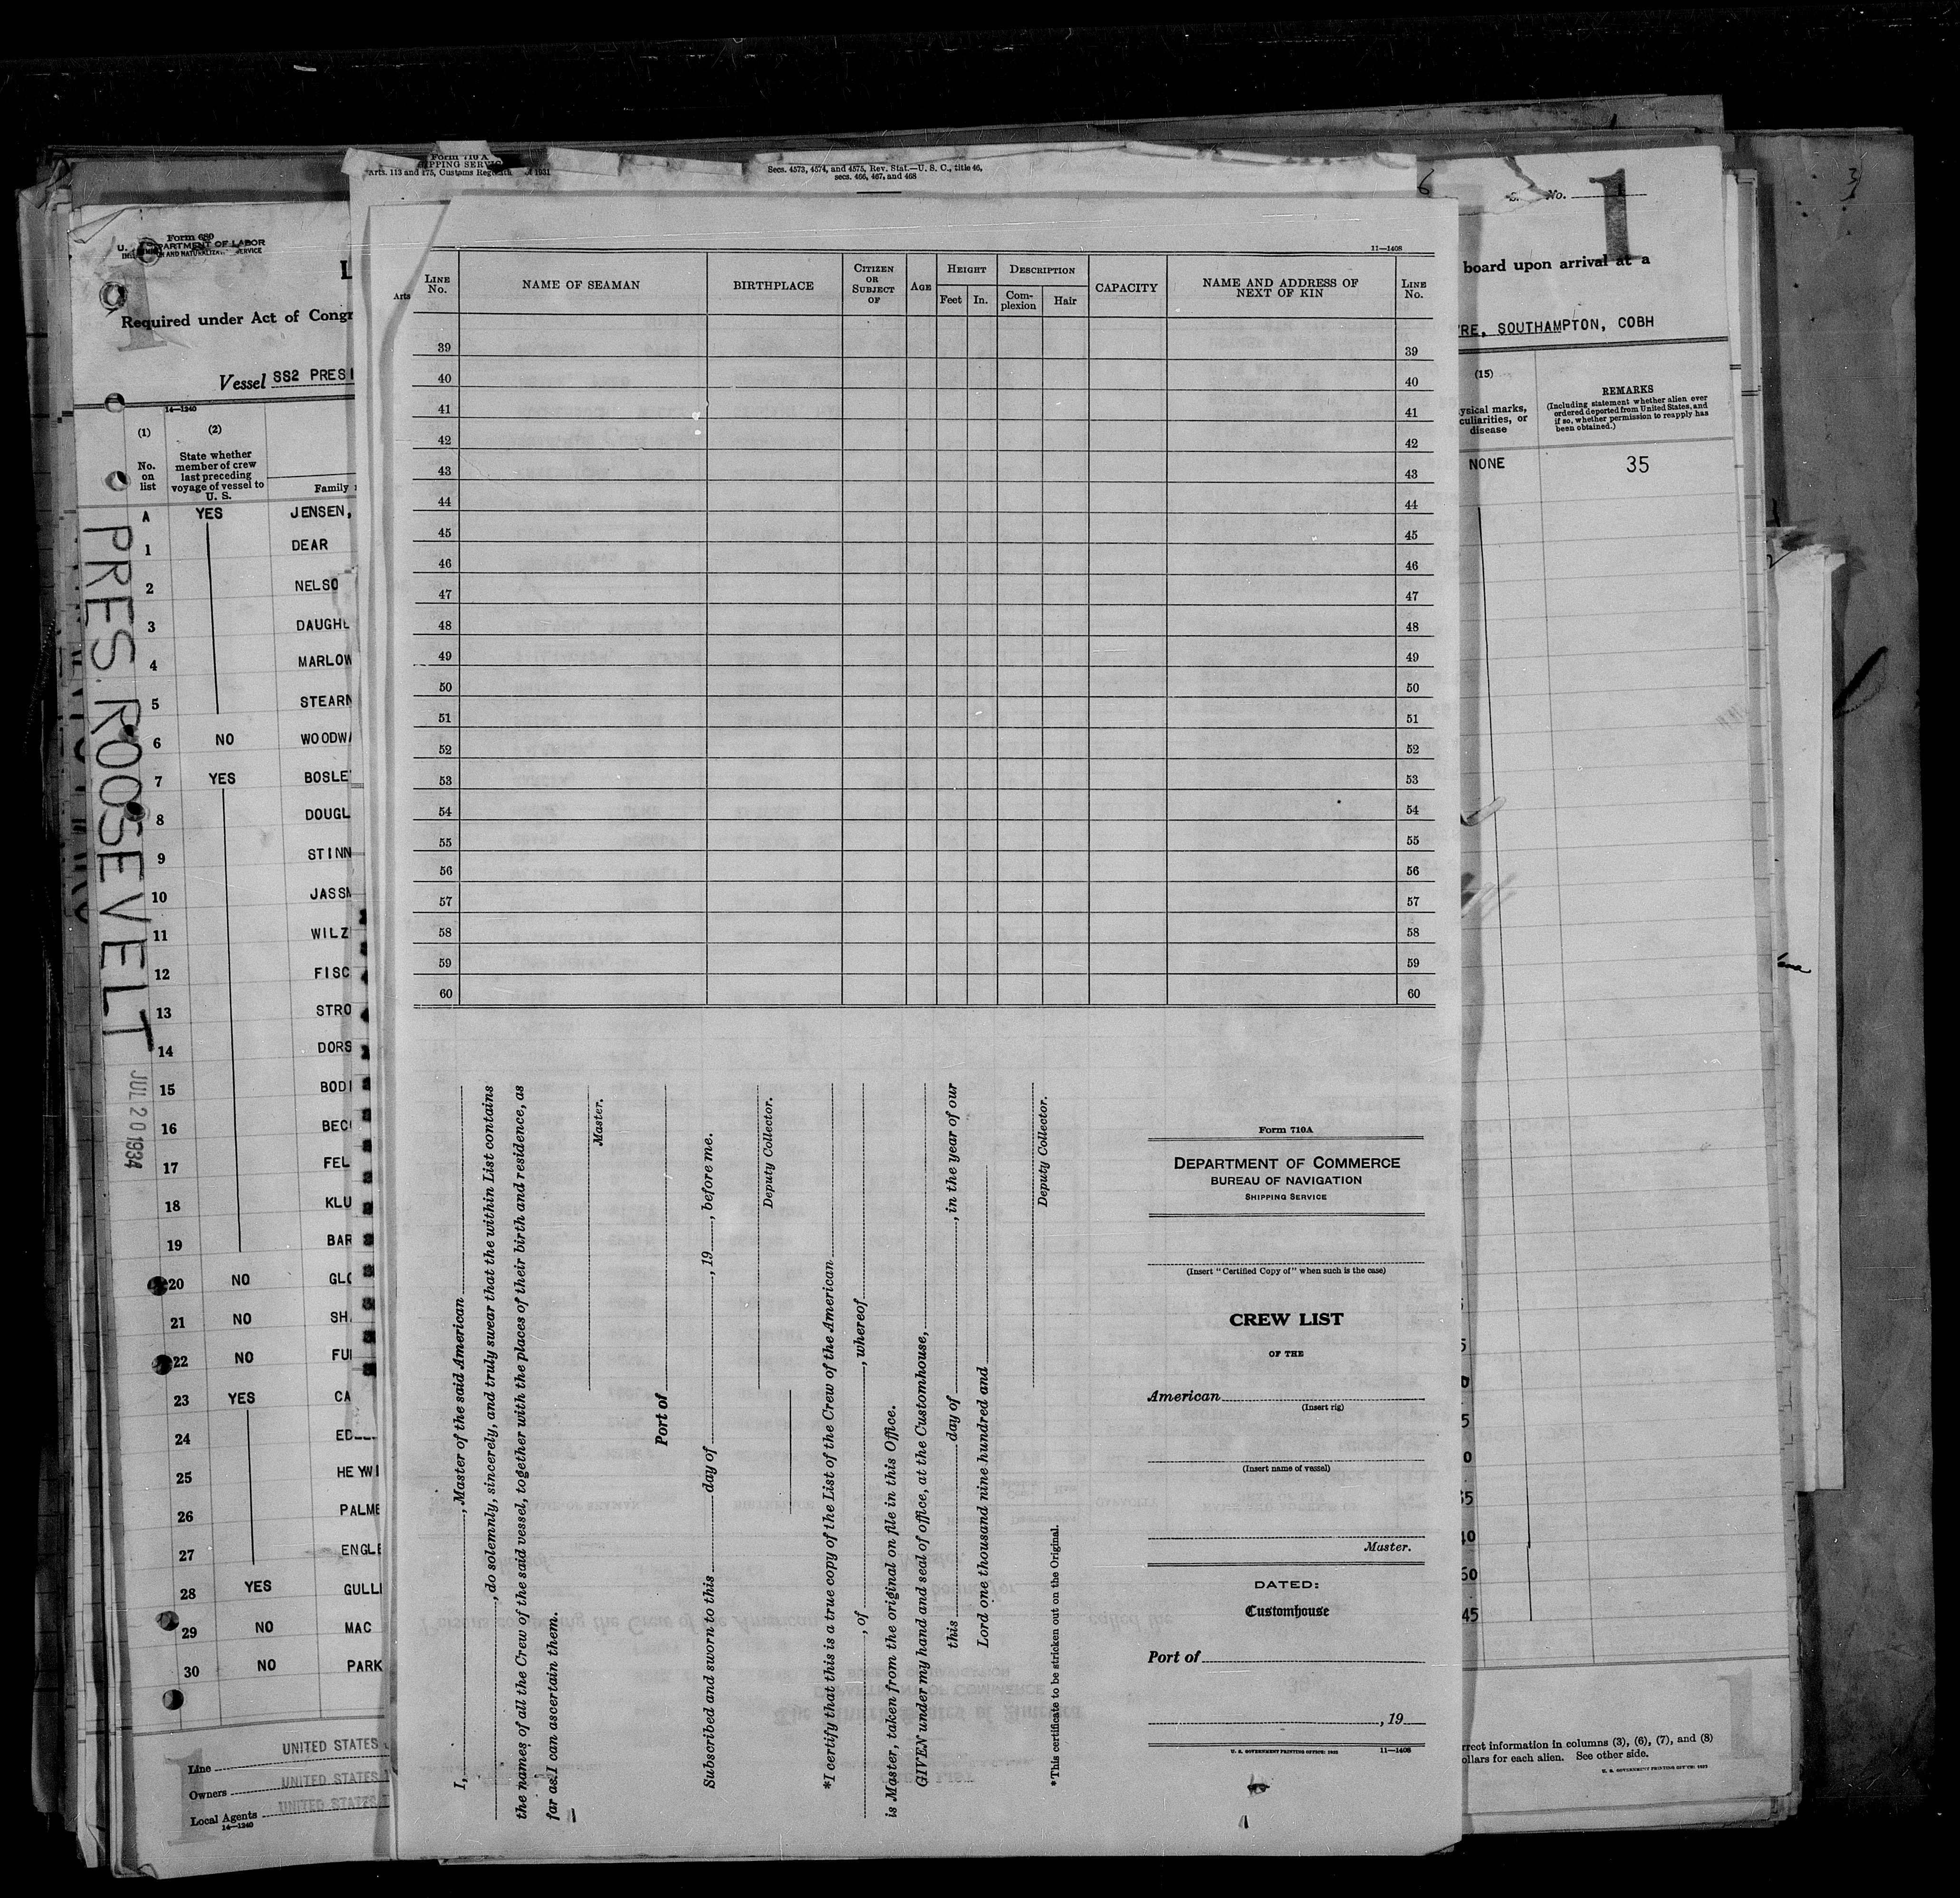 Form 710 A
Arts. 113 and 175, Customs of 1931
Secs. 4573, 4574, and 4575, Rev. Stat.—U. S. C., title 46,
secs. 466, 467, and 468
6
No.
1
Form 680
U. DEPARTMENT OF LABOR
AND NATURALIZ SERVICE
1
L
Required under Act of Congr
Vessel SS2 PRESI
14—1240
(1)
(2)
No. on list
State whether member of crew last preceding voyage of vessel to U. S.
Family
A YES JENSEN,
1 DEAR
2 NELSO
3 DAUGH
4 MARLOW
5 STEARN
6 NO WOODWA
7 YES BOSLE
8 DOUGL
9 STINN
10 JASSM
11 WILZ
12 FISC
13 STRO
14 DORS
15 BODI
16 BEC
17 FEL
18 KLU
19 BAR
20 NO GLO
21 NO SH
22 NO FU
23 YES CA
24 ED
25 HEYWI
26 PALME
27 ENGLE
28 YES GULLI
29 NO MAC
30 NO PARK
PRES. ROOSEVELT
JUL 20 1934
Line UNITED STATES
Owners UNITED STATES
Local Agents UNITED STATES
14—1240
1
Arts
11—1408
LINE No.
NAME OF SEAMAN
BIRTHPLACE
CITIZEN OR SUBJECT OF
AGE
HEIGHT
Feet
In.
DESCRIPTION
Complexion
Hair
CAPACITY
NAME AND ADDRESS OF NEXT OF KIN
LINE No.
39 39
40 40
41 41
42 42
43 43
44 44
45 45
46 46
47 47
48 48
49 49
50 50
51 51
52 52
53 53
54 54
55 55
56 56
57 57
58 58
59 59
60 60
I, , Master of the said American
, do solemnly, sincerely, and truly swear that the within List contains
the names of all the Crew of the said vessel, together with the places of their birth and residence, as
far as I can ascertain them.
Master.
Port of
Subscribed and sworn to this day of , 19 , before me.
Deputy Collector.
*I certify that this is a true copy of the List of the Crew of the American
, of , whereof
is Master, taken from the original on file in this Office.
GIVEN under my hand and seal of office, at the Customhouse,
this day of , in the year of our
Lord one thousand nine hundred and
Deputy Collector.
*This certificate to be stricken out on the Original.
Form 710A
DEPARTMENT OF COMMERCE
BUREAU OF NAVIGATION
SHIPPING SERVICE
(Insert "Certified Copy of" when such is the case)
CREW LIST
OF THE
American
(Insert rig)
(Insert name of vessel)
Master.
DATED:
Customhouse
Port of
, 19
U. S. GOVERNMENT PRINTING OFFICE: 1932 11—1408
board upon arrival at a
RE, SOUTHAMPTON, COBH
(15)
ysical marks,
culiarities, or
disease
REMARKS
(Including statement whether alien ever
ordered deported from United States, and
if so, whether permission to reapply has
been obtained.)
NONE 35
rrect information in columns (3), (6), (7), and (8)
ollars for each alien. See other side.
U. S. GOVERNMENT PRINTING OFFICE: 1932
1